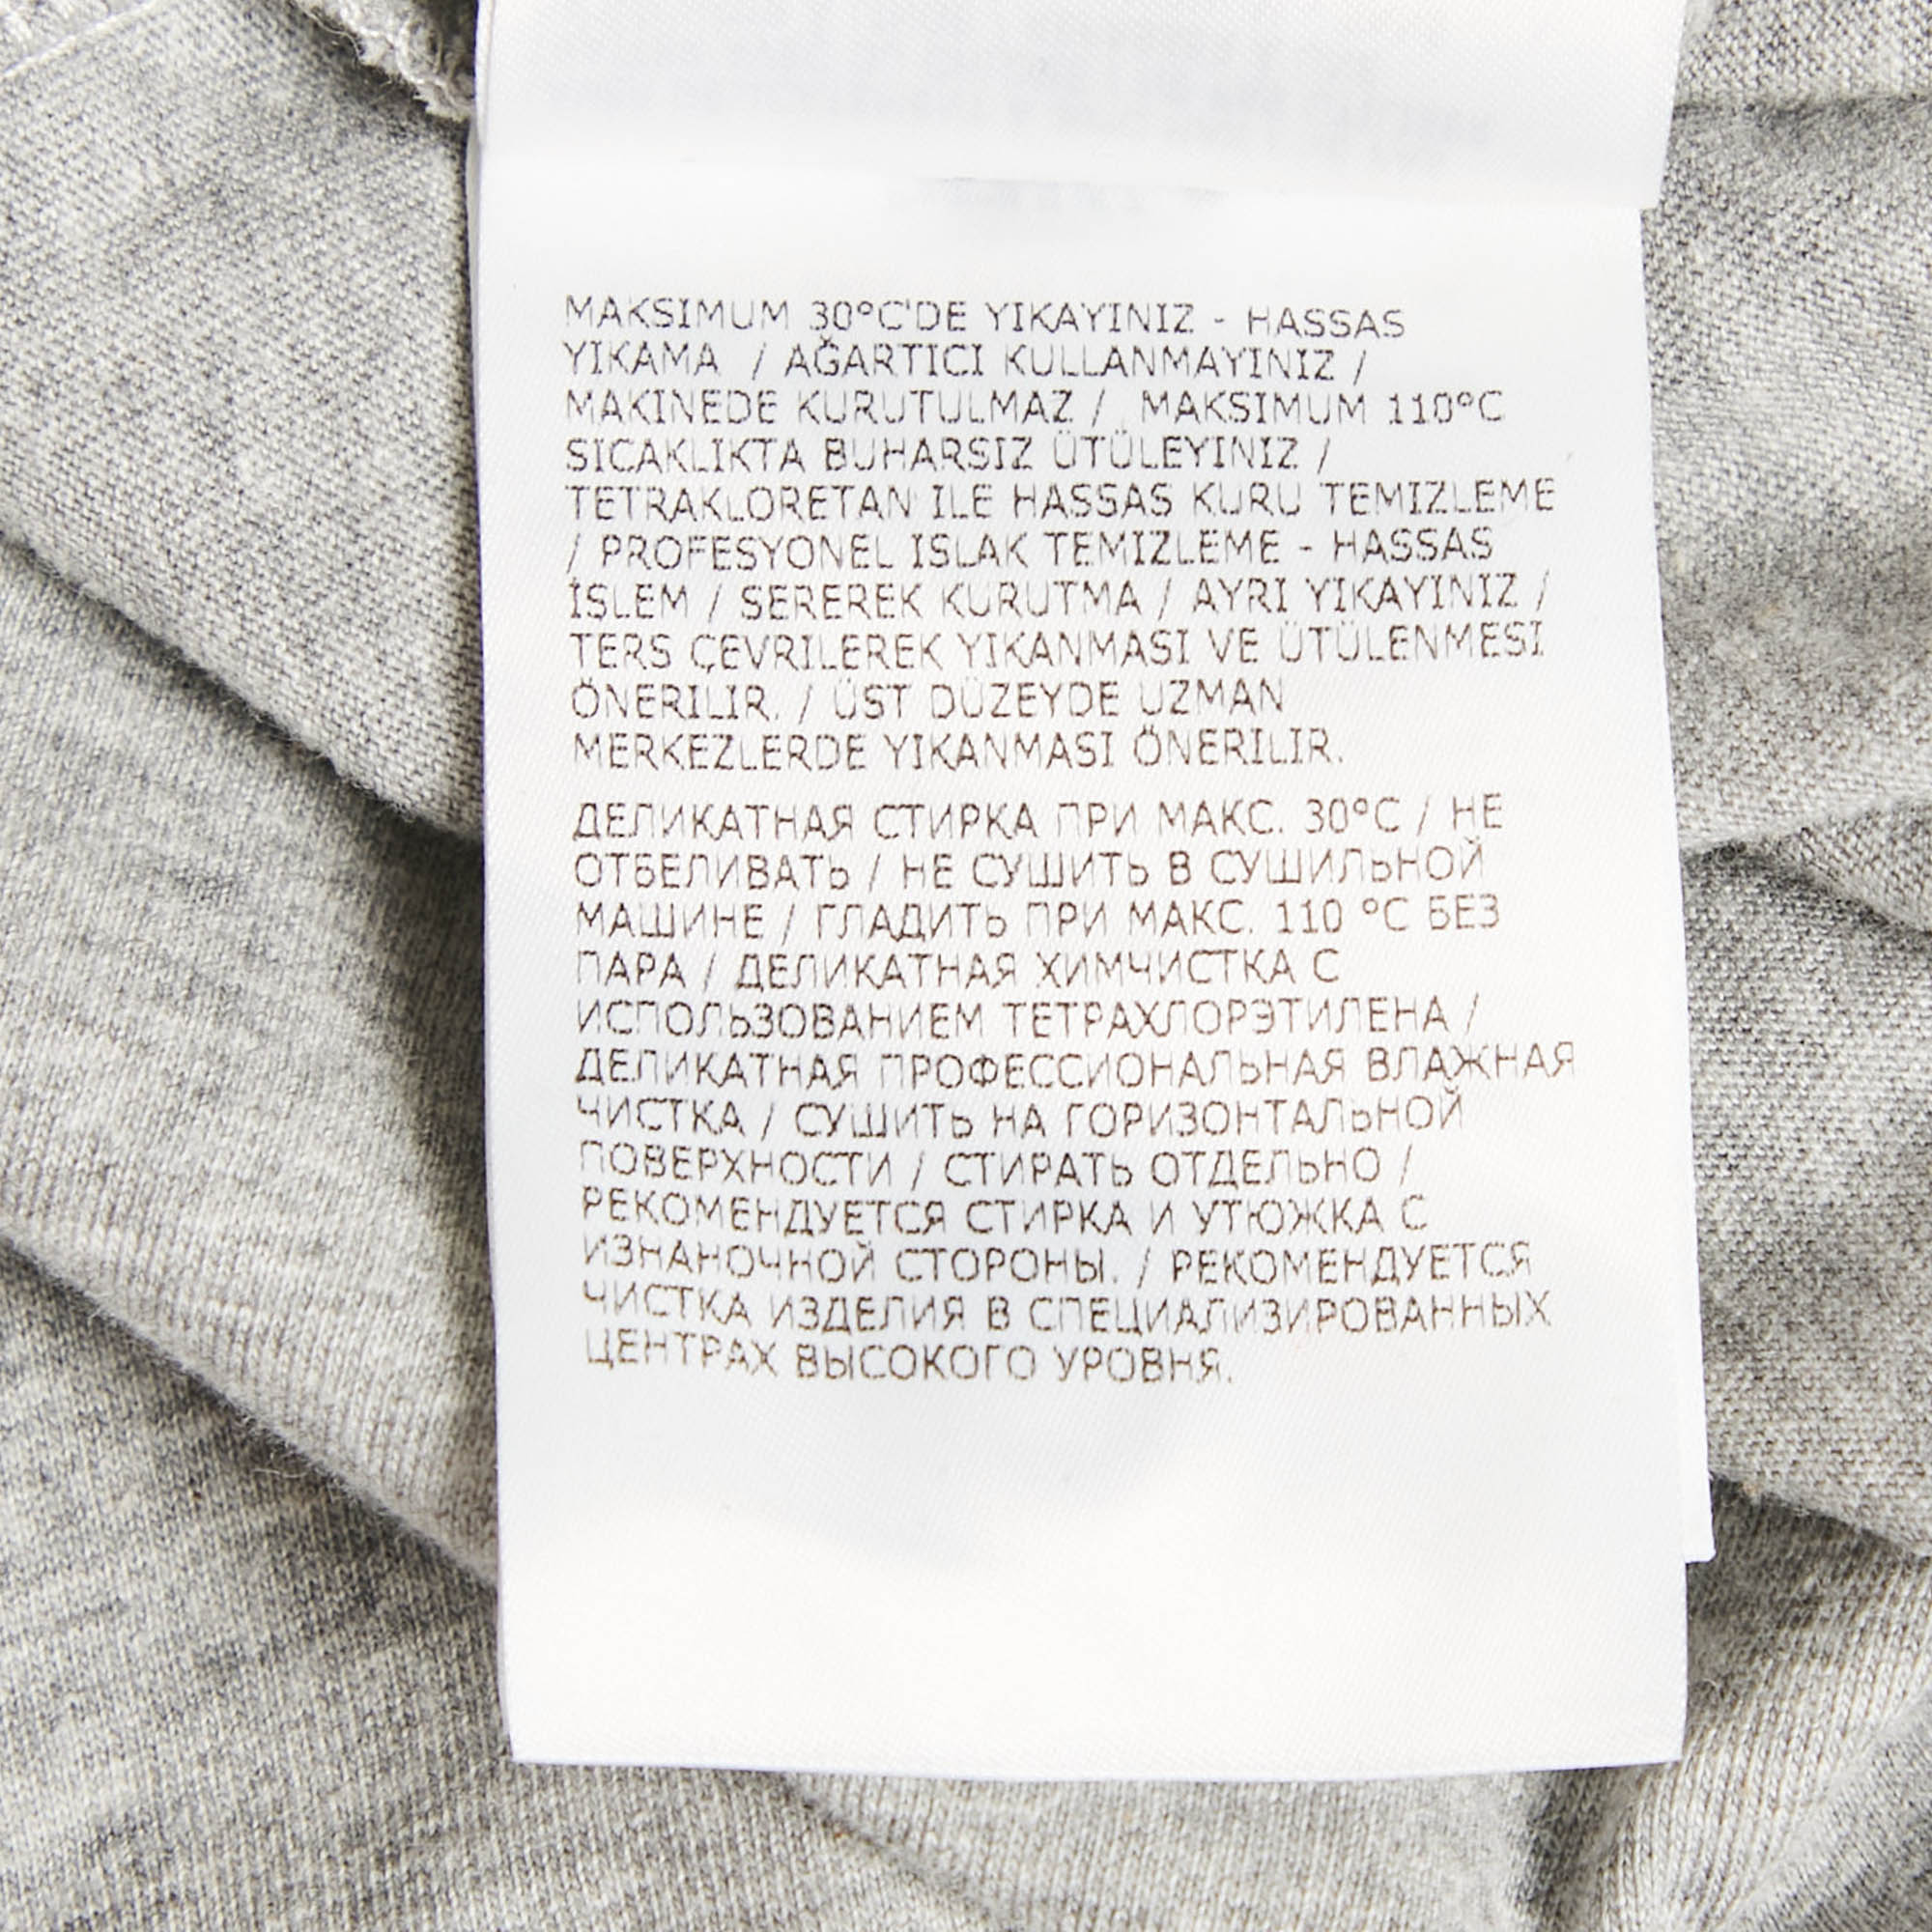 MAKSIMUM 30°C'DE YIKAYINIZ - HASSAS
YIKAMA / AĞARTICI KULLANMAYINIZ /
MAKINEDE KURUTULMAZ / MAKSIMUM 110°C
SICAKLIKTA BUHARSIZ ÜTÜLEYINIZ /
TETRAKLORETAN ILE HASSAS KURU TEMIZLEME
/ PROFESYONEL ISLAK TEMIZLEME - HASSAS
İSLEM / SEREREK KURUTMA / AYRI YIKAYINIZ /
TERS ÇEVRILEREK YIKANMASI VE ÜTÜLENMESI
ÖNERILIR. / ÜST DÜZEYDE UZMAN
MERKEZLERDE YIKANMASI ÖNERILIR.
ДЕЛИКАТНАЯ СТИРКА ПРИ МАКС. 30°C / НЕ
ОТБЕЛИВАТЬ / НЕ СУШИТЬ В СУШИЛЬНОЙ
МАШИНЕ / ГЛАДИТЬ ПРИ МАКС. 110 °C БЕЗ
ПАРА / ДЕЛИКАТНАЯ ХИМЧИСТКА С
ИСПОЛЬЗОВАНИЕМ ТЕТРАХЛОРЭТИЛЕНА /
ДЕЛИКАТНАЯ ПРОФЕССИОНАЛЬНАЯ ВЛАЖНАЯ
ЧИСТКА / СУШИТЬ НА ГОРИЗОНТАЛЬНОЙ
ПОВЕРХНОСТИ / СТИРАТЬ ОТДЕЛЬНО /
РЕКОМЕНДУЕТСЯ СТИРКА И УТЮЖКА С
ИЗНАНОЧНОЙ СТОРОНЫ. / РЕКОМЕНДУЕТСЯ
ЧИСТКА ИЗДЕЛИЯ В СПЕЦИАЛИЗИРОВАННЫХ
ЦЕНТРАХ ВЫСОКОГО УРОВНЯ.